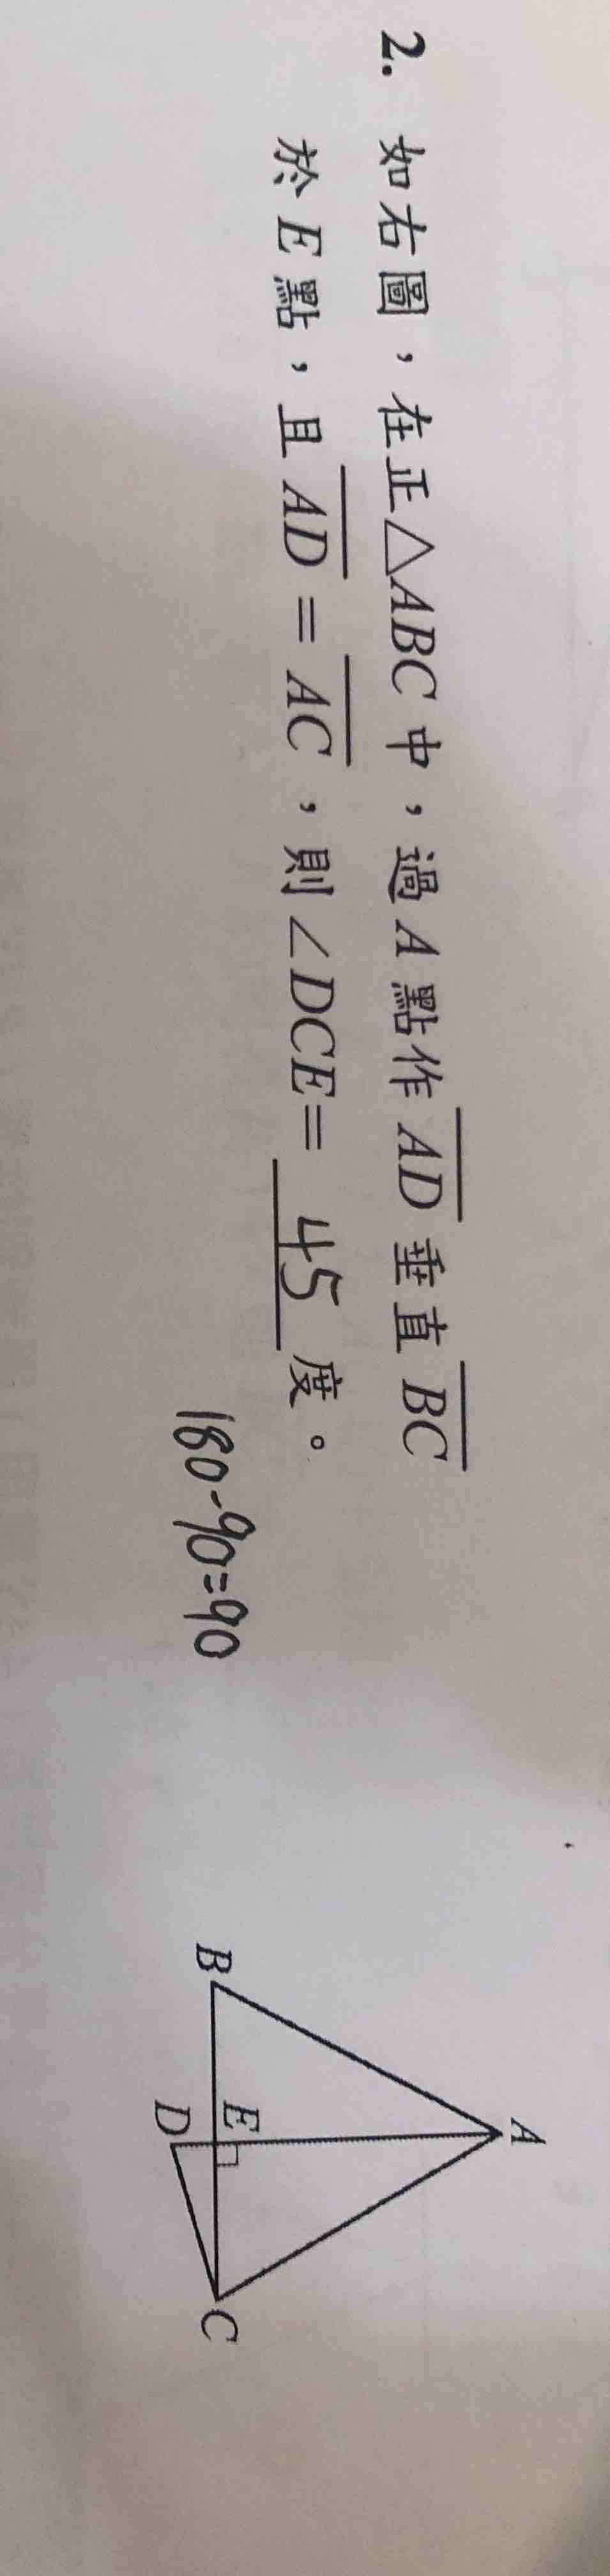 2. 如右圖，在正△ABC中，過A點作AD垂直BC
於E點，且AD=AC，則∠DCE= 45 度。
180-90=90
A
B
E
D
C